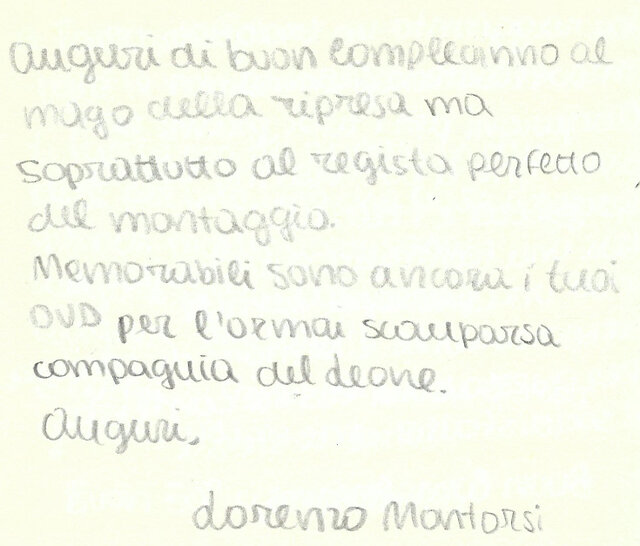 Auguri di buon compleanno al
mago della ripresa ma
soprattutto al regista perfetto
del montaggio.
Memorabili sono ancora i tuoi
DVD per l'ormai scomparsa
compagnia del Leone.
Auguri,
Lorenzo Montorsi